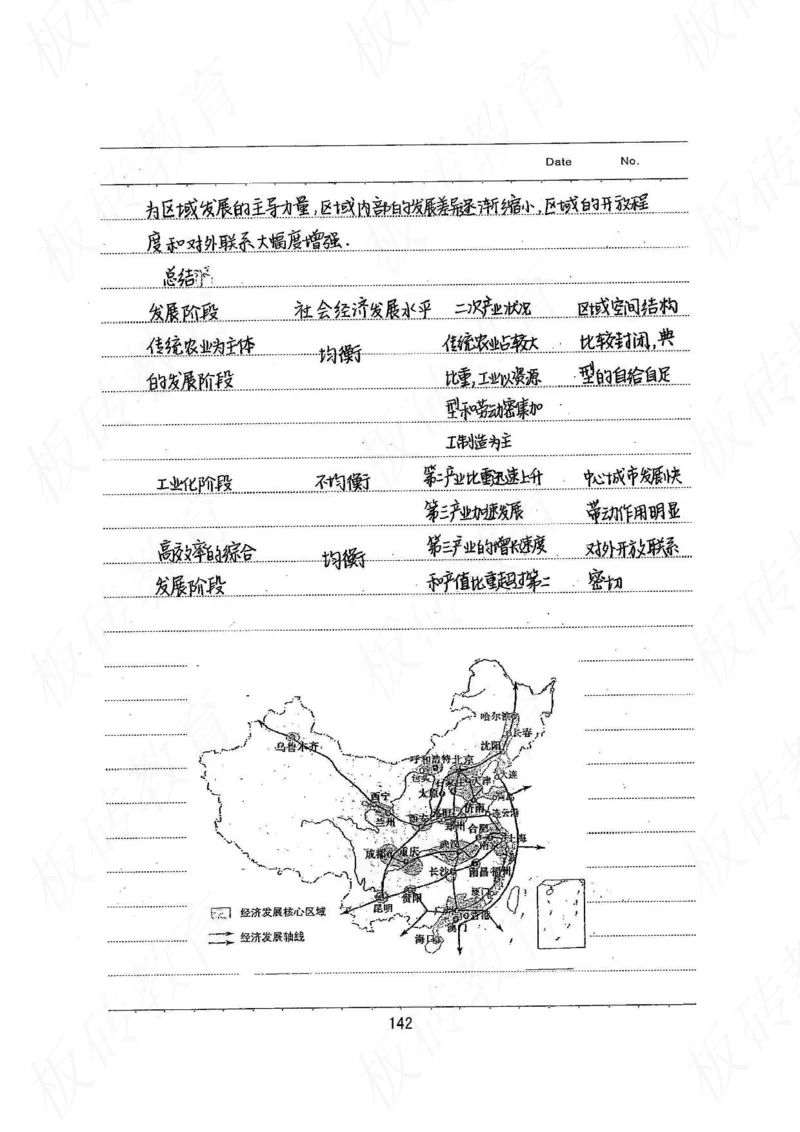 Date No.
为区域发展的主导力量,区域内部的发展差距逐渐缩小,区域的开放程
度和对外联系大幅度增强.
总结
发展阶段 社会经济发展水平 二次产业状况 区域空间结构
传统农业为主体 均衡 传统农业占较大 比较封闭,典
的发展阶段 比重,工业以资源 型的自给自足
型和劳动密集加
工制造为主
工业化阶段 不均衡 第二产业比重迅速上升 中心城市发展快
第三产业加速发展 带动作用明显
高效率的综合 均衡 第三产业的增长速度 对外开放联系
发展阶段 和产值比重超过第二 密切
哈尔滨
长春
乌鲁木齐 沈阳
呼和浩特 北京
包头 天津 大连
太原
西宁 济南 青岛
兰州 西安 洛阳 郑州 连云港
合肥 上海
成都 重庆 武汉
长沙 南昌 福州
贵阳 厦门
昆明 广州 香港
澳门
海口
经济发展核心区域
经济发展轴线
142
板砖教育